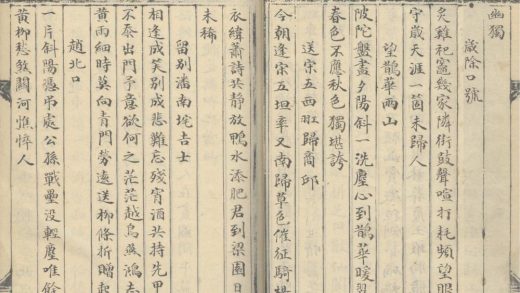 幽獨
歲除口號
炙雞祀竈幾家隣街鼓聲喧打耗頻望眼
守歲天涯一箇未歸人
望鵲華兩山
陂陀盤畫夕陽斜一洗塵心到鵲華暖翠
春色不應秋色獨堪誇
送宋五西㢠歸商邱
今朝逢宋五坦率又南歸草色催征騎楊
衣緯蕭詩共靜放鴨水添肥君到梁園日
未稀
留別潘南垞吉士
相逢成笑別成悲難忘殘宵酒共持先甲
不忝出門予意欲何之茫茫越鳥燕鴻志
黃雨細時莫向青門勞遠送柳條折贈起
趙北口
一片斜陽憑弔處公孫戰壘沒輕塵唯餘
黃柳愁煞關河憔悴人